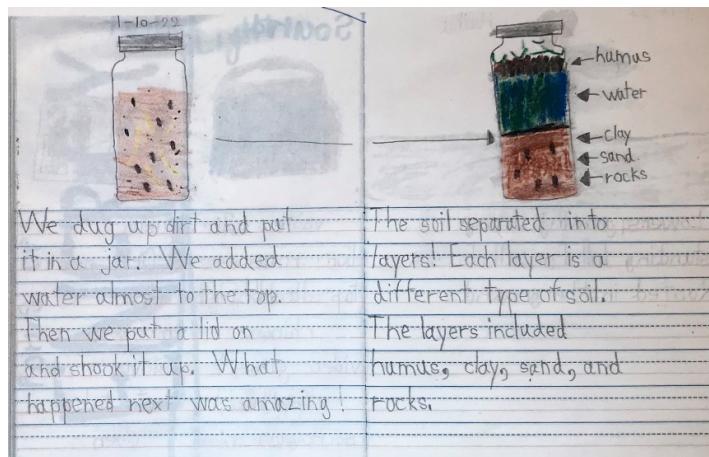 1-10-22
We dug up dirt and put
it in a jar. We added
water almost to the top.
Then we put a lid on
and shook it up. What
happened next was amazing!
humus
water
clay
sand
rocks
The soil separated into
layers! Each layer is a
different type of soil.
The layers included
humus, clay, sand, and
rocks.